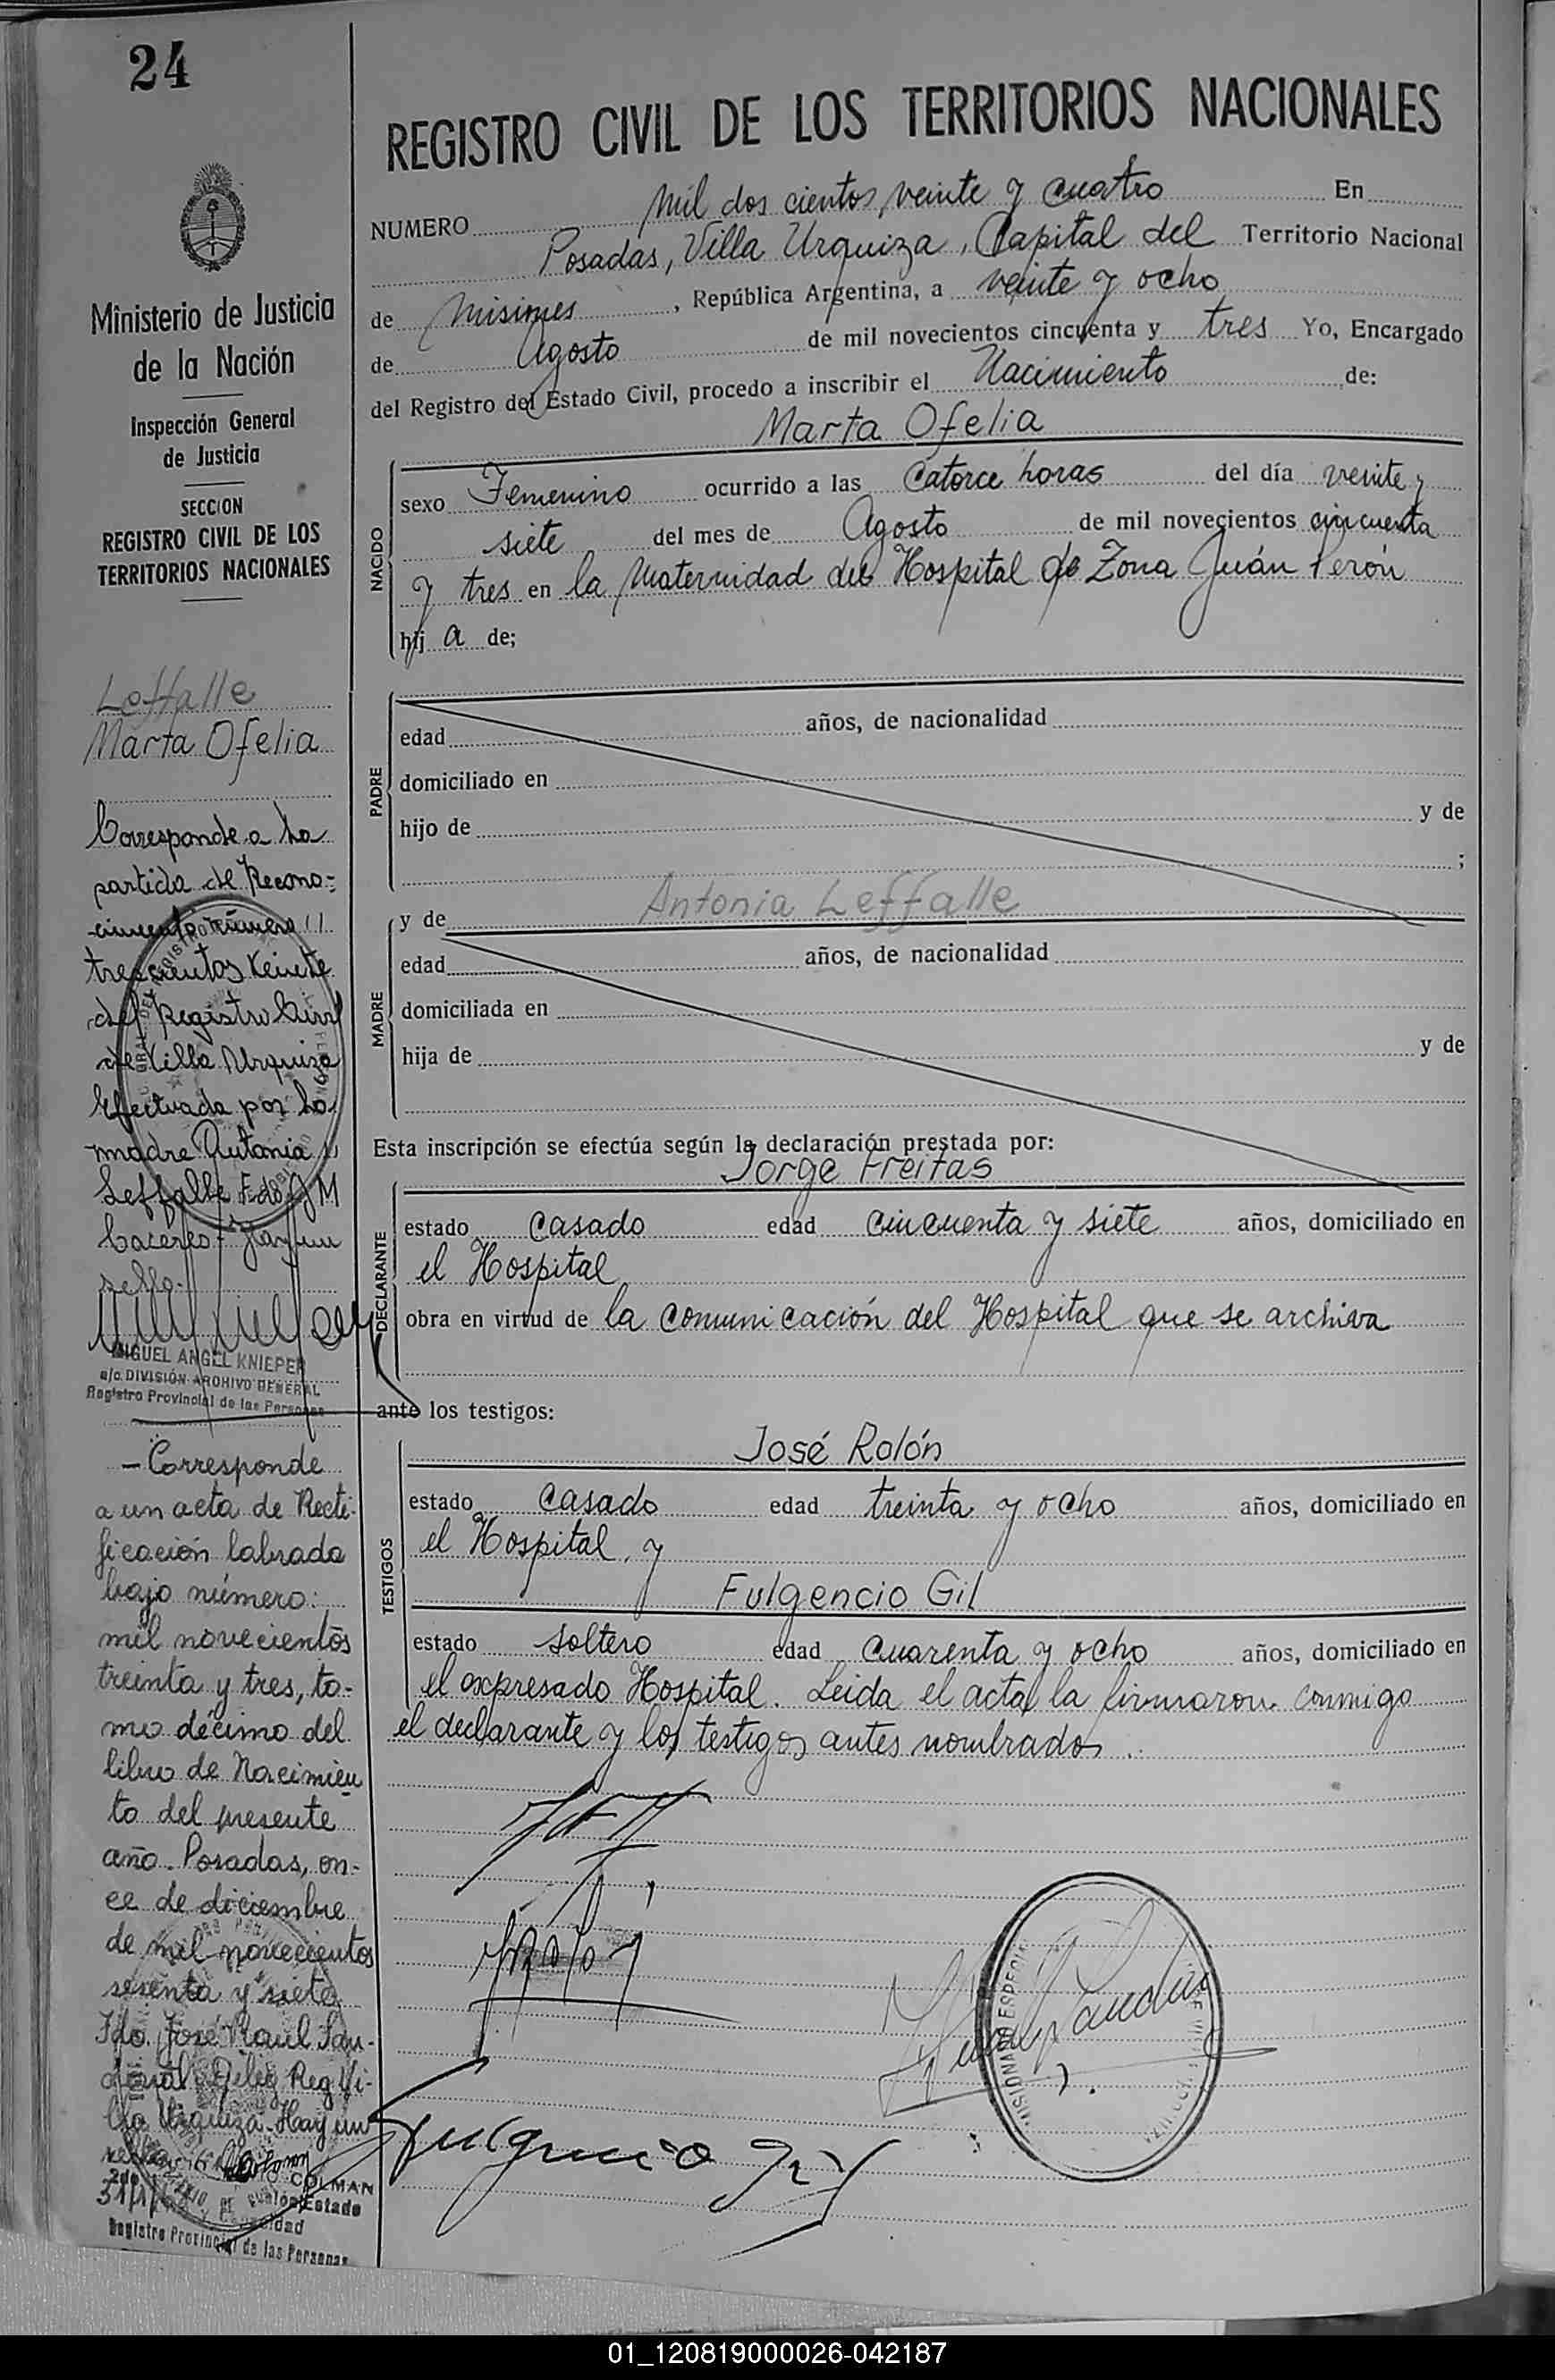 24
Ministerio de Justicia
de la Nación
Inspección General
de Justicia
SECCION
REGISTRO CIVIL DE LOS
TERRITORIOS NACIONALES
Leffalle
Marta Ofelia
Corresponde a la
partida de Recono-
cimiento número
trescientos veinte
del Registro Civil
de Villa Urquiza
Efectuada por la
madre Antonia
Leffalle Fdo J M
Caceres - Hay un
sello.-
MIGUEL ANGEL KNIEPER
a/c. DIVISIÓN ARCHIVO GENERAL
Registro Provincial de las Personas
- Corresponde
a un acta de Recti-
ficación labrada
bajo número:
mil novecientos
treinta y tres, to-
mo décimo del
libro de Nacimien
to del presente
año. Posadas, on-
ce de diciembre
de mil novecientos
sesenta y siete
Fdo. José Raul San-
Deleg Reg Vi-
lla Urquiza. Hay un
sello
COLMAN
2do
Estado
Registro Provincial de las Personas
REGISTRO CIVIL DE LOS TERRITORIOS NACIONALES
NUMERO mil dos cientos veinte y cuatro En
Posadas, Villa Urquiza, Capital del Territorio Nacional
de Misiones, República Argentina, a veinte y ocho
de Agosto de mil novecientos cincuenta y tres Yo, Encargado
del Registro del Estado Civil, procedo a inscribir el Nacimiento de:
Marta Ofelia
NACIDO
sexo Femenino ocurrido a las Catorce horas del día veinte y
siete del mes de Agosto de mil novecientos cincuenta
y tres en la Maternidad del Hospital de Zona Juán Perón
hij a de;
PADRE
edad años, de nacionalidad
domiciliado en
hijo de y de
;
MADRE
y de Antonia Leffalle
edad años, de nacionalidad
domiciliada en
hija de y de
Esta inscripción se efectúa según la declaración prestada por:
Jorge Freitas
DECLARANTE
estado casado edad cincuenta y siete años, domiciliado en
el Hospital
obra en virtud de la comunicación del Hospital que se archiva
ante los testigos:
TESTIGOS
José Rolón
estado casado edad treinta y ocho años, domiciliado en
el Hospital, y
Fulgencio Gil
estado soltero edad cuarenta y ocho años, domiciliado en
el expresado Hospital. Leida el acta la firmaron conmigo
el declarante y los testigos antes nombrados.
Fulgencio Gil
01_120819000026-042187